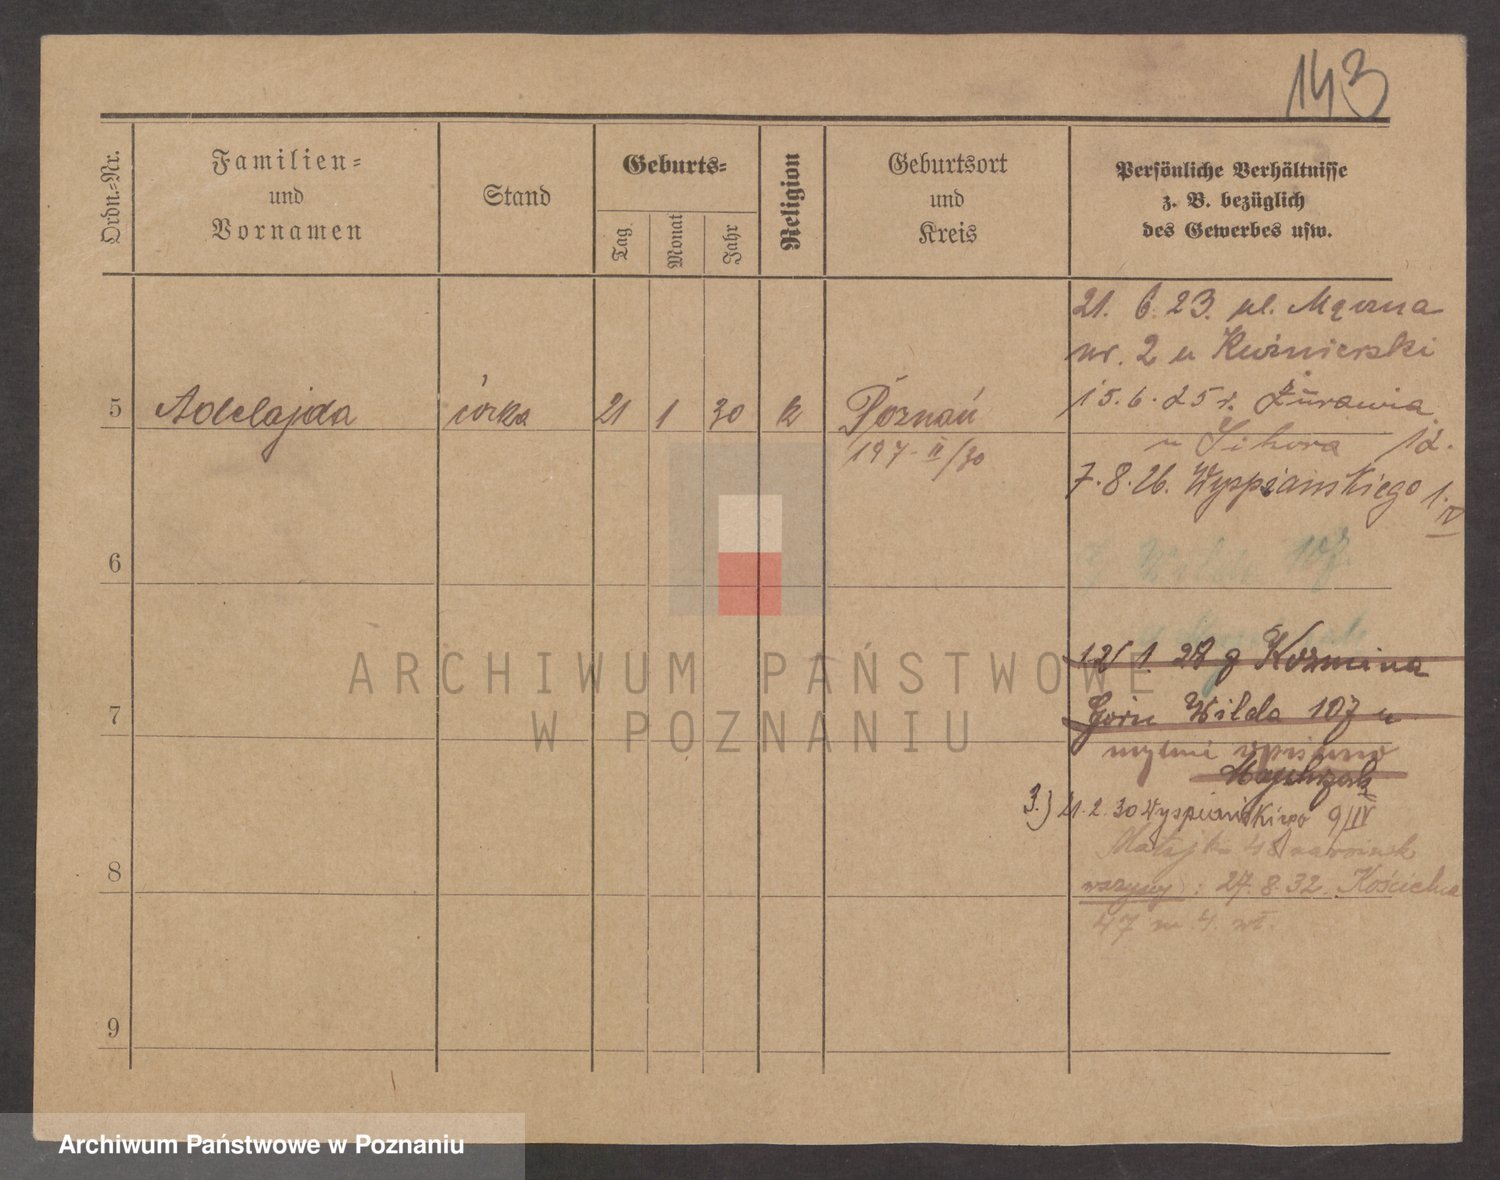 143
Ordn.-Nr.
Familien-
und
Vornamen
Stand
Geburts-
Tag
Monat
Jahr
Religion
Geburtsort
und
Kreis
Persönliche Verhältnisse
z. B. bezüglich
des Gewerbes usw.
21. 6. 23. ul. Mączna
nr. 2 u Kuśnierski
5 Adelajda córka 21 1 30 k Poznań
15.6.25 r. Żórawia
u Sikora 12.
197 - II/30
7.8.26. Wyspiańskiego 1. IV
6
G Wilda 107.
12/1 28 z Koźmina
7
Górn Wilda 107 u
mylnie wpisano
Majchrzak
3.) 21.2.30 Wyspiańskiego 9/IV
Matejki 48
8
wszyscy: 27.8.32. Kościelna
47 m 4. wł.
9
ARCHIWUM PAŃSTWOWE
W POZNANIU
Archiwum Państwowe w Poznaniu